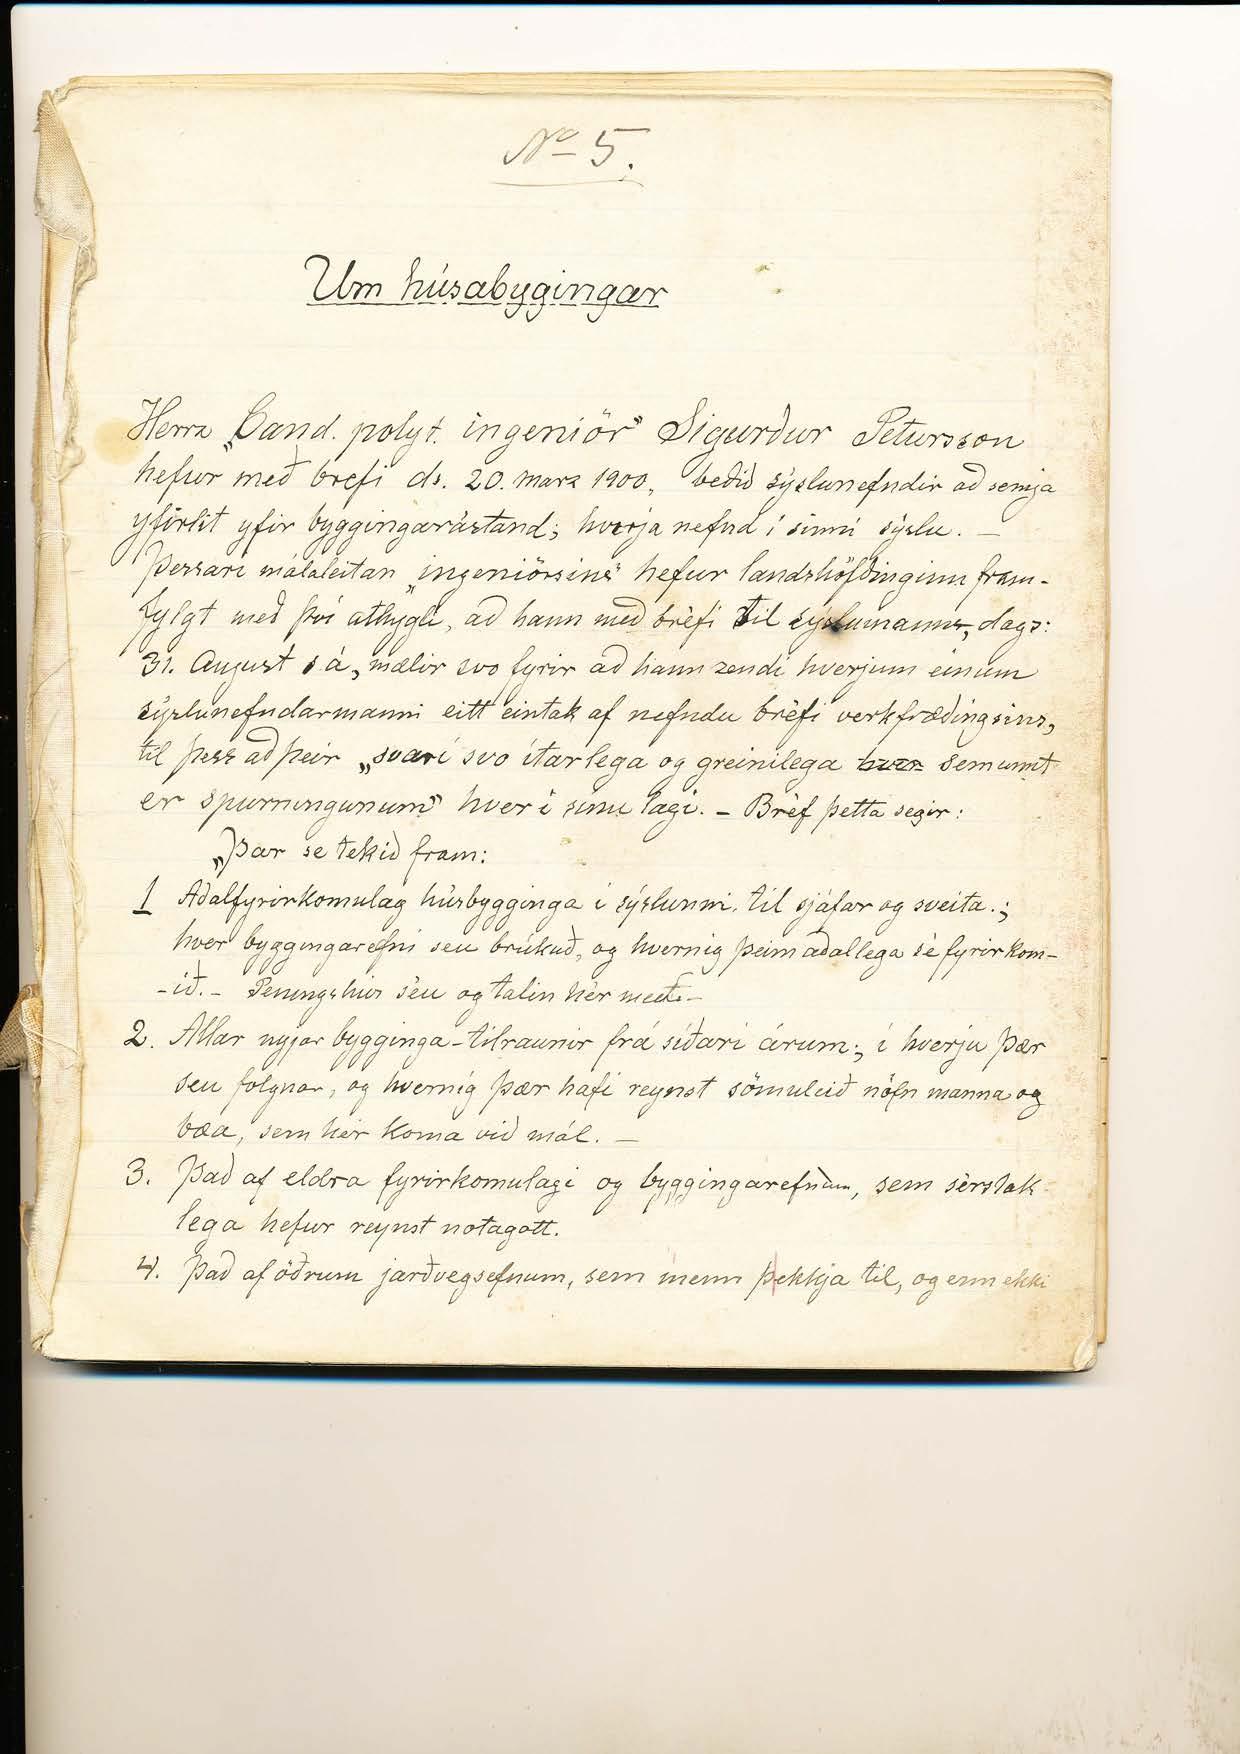 No 5.
Um húsabygingar
Herra „Cand. polyt. ingeniör" Sigurður Petursson
hefur með brefi ds. 20. marz 1900, beðið sýslunefndir að semja
yfirlit yfir byggingarástand; hverja nefnd í sinni sýslu. —
Þessari málaleitan „ingeniörsins" hefur landshöfðinginn fram-
fylgt með því athygli, að hann með bréfi til sýslumanns, dags:
31. August s á, mælir svo fyrir að hann sendi hverjum einum
sýslunefndarmanni eitt eintak af nefndu bréfi verkfræðingsins,
til þess að þeir „svari svo ítarlega og greinilega sem unnt
er spurningunum" hver í sínu lagi. – Bréf þetta segir:
„Þar se tekið fram:
1 Aðalfyrirkomulag húsbygginga í sýslunni. til sjáfar og sveita.;
hver byggingarefni seu brúkuð, og hvernig þeim aðallega sé fyrirkom-
-ið. – Peningshús séu og talin hér með. –
2. Allar nyjar bygginga-tilraunir frá síðari árum; í hverju þær
seu folgnar, og hvernig þær hafi reynst sömuleið nöfn manna og
bæa, sem hér koma við mál. —
3. Það af eldra fyrirkomulagi og byggingarefnum, sem sérstak-
lega hefur reynst notagott.
4. Það af öðrum jarðvegsefnum, sem menn þekkja til, og enn ekki